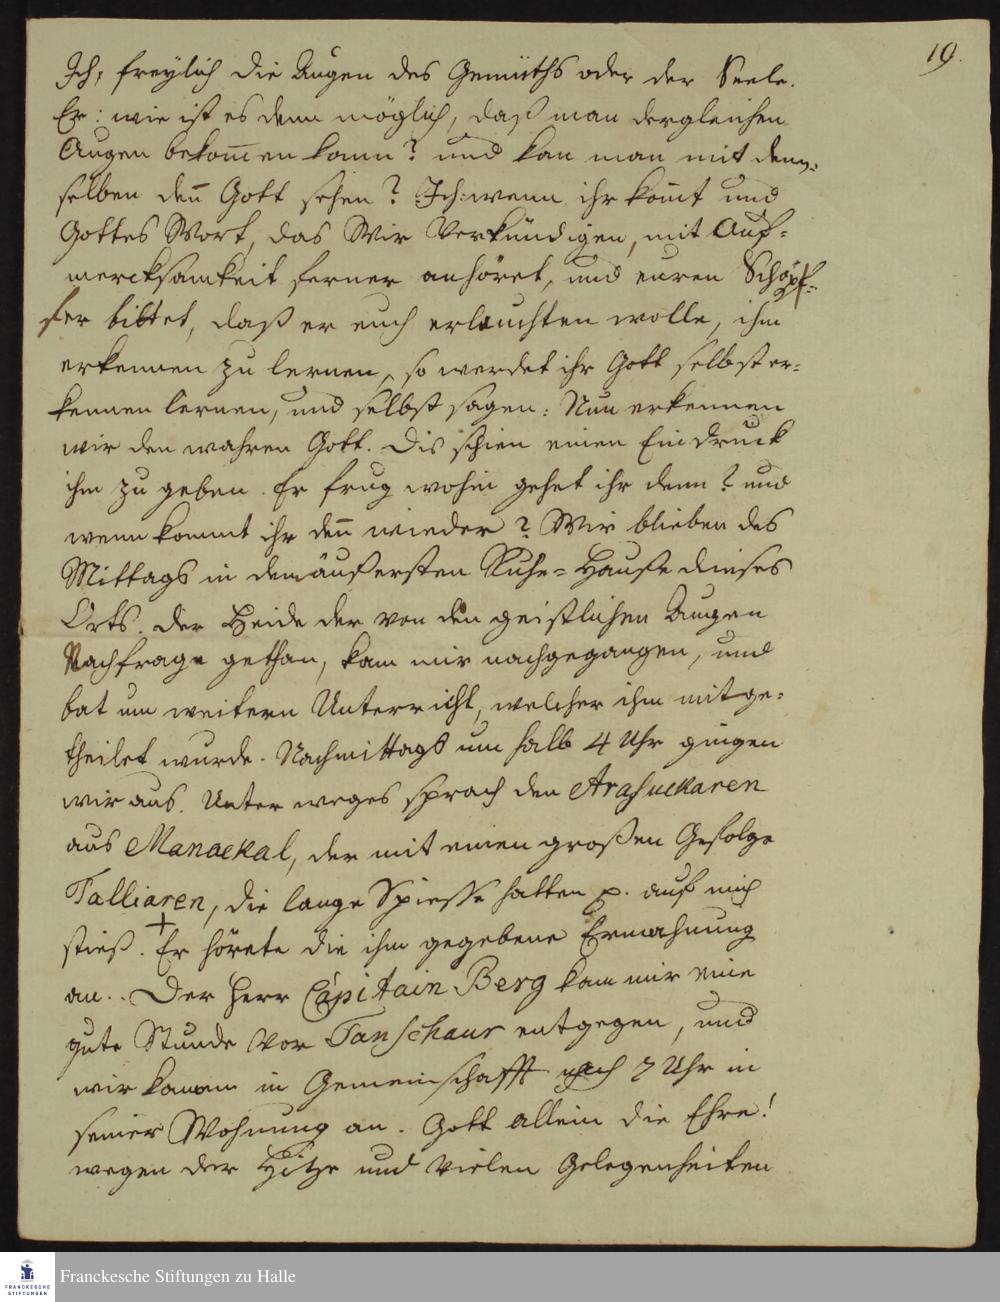 19.
Ich, freylich die Augen des Gemüths oder der Seele.
Er: wie ist es denn möglich, daß man dergleichen
Augen bekom̄en kann? und kan man mit dem-
selben den̄ Gott sehen? Ich: wenn ihr kom̄t und
Gottes Wort, das Wir Verkündigen, mit Auf=
mercksamkeit ferner anhöret, und euren Schöpf=
fer bittet, daß er euch erleuchten wolle, ihn
erkennen zu lernen, so werdet ihr Gott selbst er=
kennen lernen, und selbst sagen: Nun erkennen
wir den wahren Gott. Dis schien einen Eindruck
ihm zu geben. Er frug wohin gehet ihr denn? und
wenn kommt ihr den̄ wieder? Wir blieben des
Mittags in dem äußersten Ruhe=Hause dieses
Orts. Der Heide der von den geistlichen Augen
Nachfrage gethan, kam mir nachgegangen, und
bat um weitern Unterricht, welcher ihm mitge=
theilet wurde. Nachmittags um halb 4 Uhr gingen
wir aus. Unter weges sprach den Arasuckaren
aus Manackal, der mit einen großen Gefolge
Talliaren, die lange Spiesse hatten p. auf mich
stieß. + Er hörete die ihm gegebene Ermahnung
an. Der Herr Capitain Berg kam mir eine
gute Stunde vor Tanschaur entgegen, und
wir kamen in Gemeinschafft nach 7 Uhr in
seiner Wohnung an. Gott allein die Ehre!
wegen der Hitze und vielen Gelegenheiten
FRANCKESCHE
STIFTUNGEN
Franckesche Stiftungen zu Halle